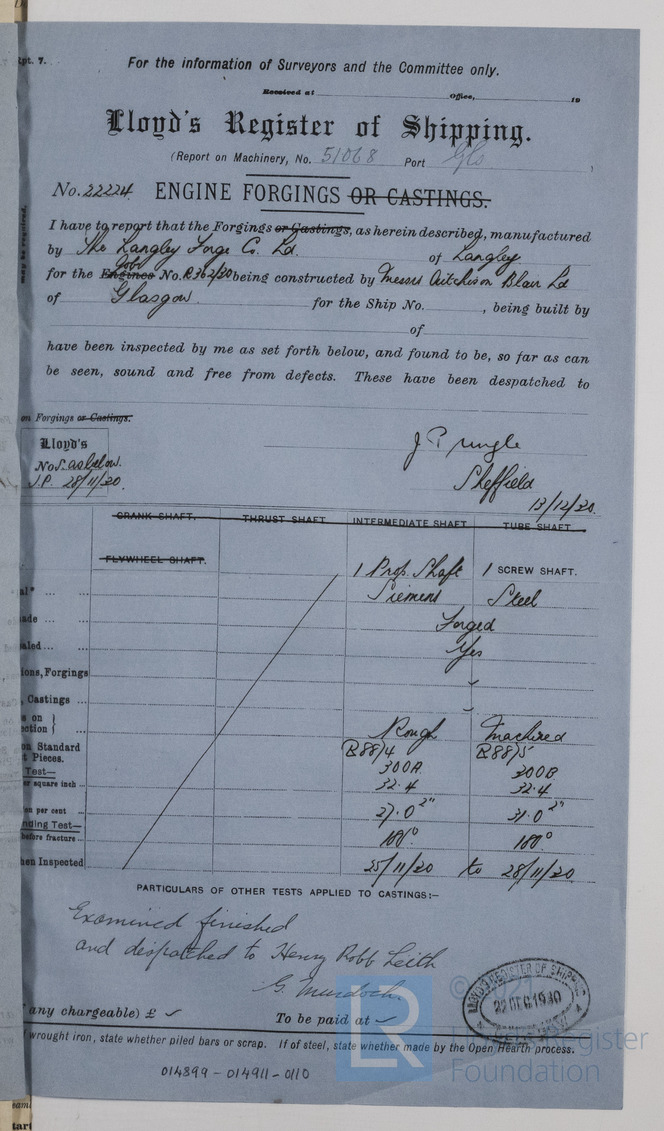 Rpt. 7.
For the information of Surveyors and the Committee only.
Received at Office, 19
Lloyd's Register of Shipping.
(Report on Machinery, No. 51068 Port Gls )
No. 22224. ENGINE FORGINGS OR CASTINGS.
may be required,
I have to report that the Forgings or Castings, as herein described, manufactured
by The Langley Forge Co. Ld. of Langley.
for the Engines Job No. R362/20 being constructed by Messrs Aitchison Blair Ld
of Glasgow. for the Ship No. , being built by
of
have been inspected by me as set forth below, and found to be, so far as can
be seen, sound and free from defects. These have been despatched to
on Forgings or Castings.
Lloyd's
No. as below.
J.P. 28/11/20.
J Pringle
Sheffield
13/12/20.
CRANK SHAFT. THRUST SHAFT INTERMEDIATE SHAFT TUBE SHAFT
FLYWHEEL SHAFT. 1 Prop. Shaft 1 SCREW SHAFT.
al* Siemens Steel
ade Forged
aled Yes
ions, Forgings
, Castings
e on
ction Rough Machined
on Standard R88/4 R88/5
t Pieces. 300A 300B
Test—
er square inch 32.4 32.4
on per cent 27.0 2" 31.0 2"
nding Test—
before fracture 180° 180°
hen Inspected 25/11/20 to 28/11/20
PARTICULARS OF OTHER TESTS APPLIED TO CASTINGS:—
Examined finished
and dispatched to Henry Robb Leith
G. Murdoch.
LLOYD'S REGISTER OF SHIPPING
22 DEC 1930
any chargeable) £ To be paid at
f wrought iron, state whether piled bars or scrap. If of steel, state whether made by the Open Hearth process.
014899-014911-0110
LR
© 2021
Lloyd's Register
Foundation